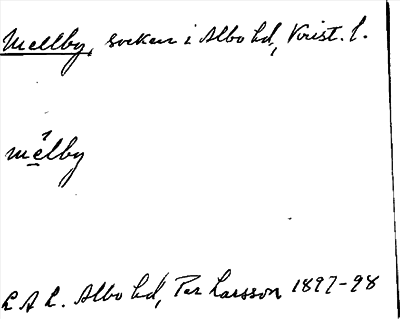 Mellby, socken i Albo hd, Krist. l.
mèlby
L A L. Albo hd, Per Larsson 1897-98